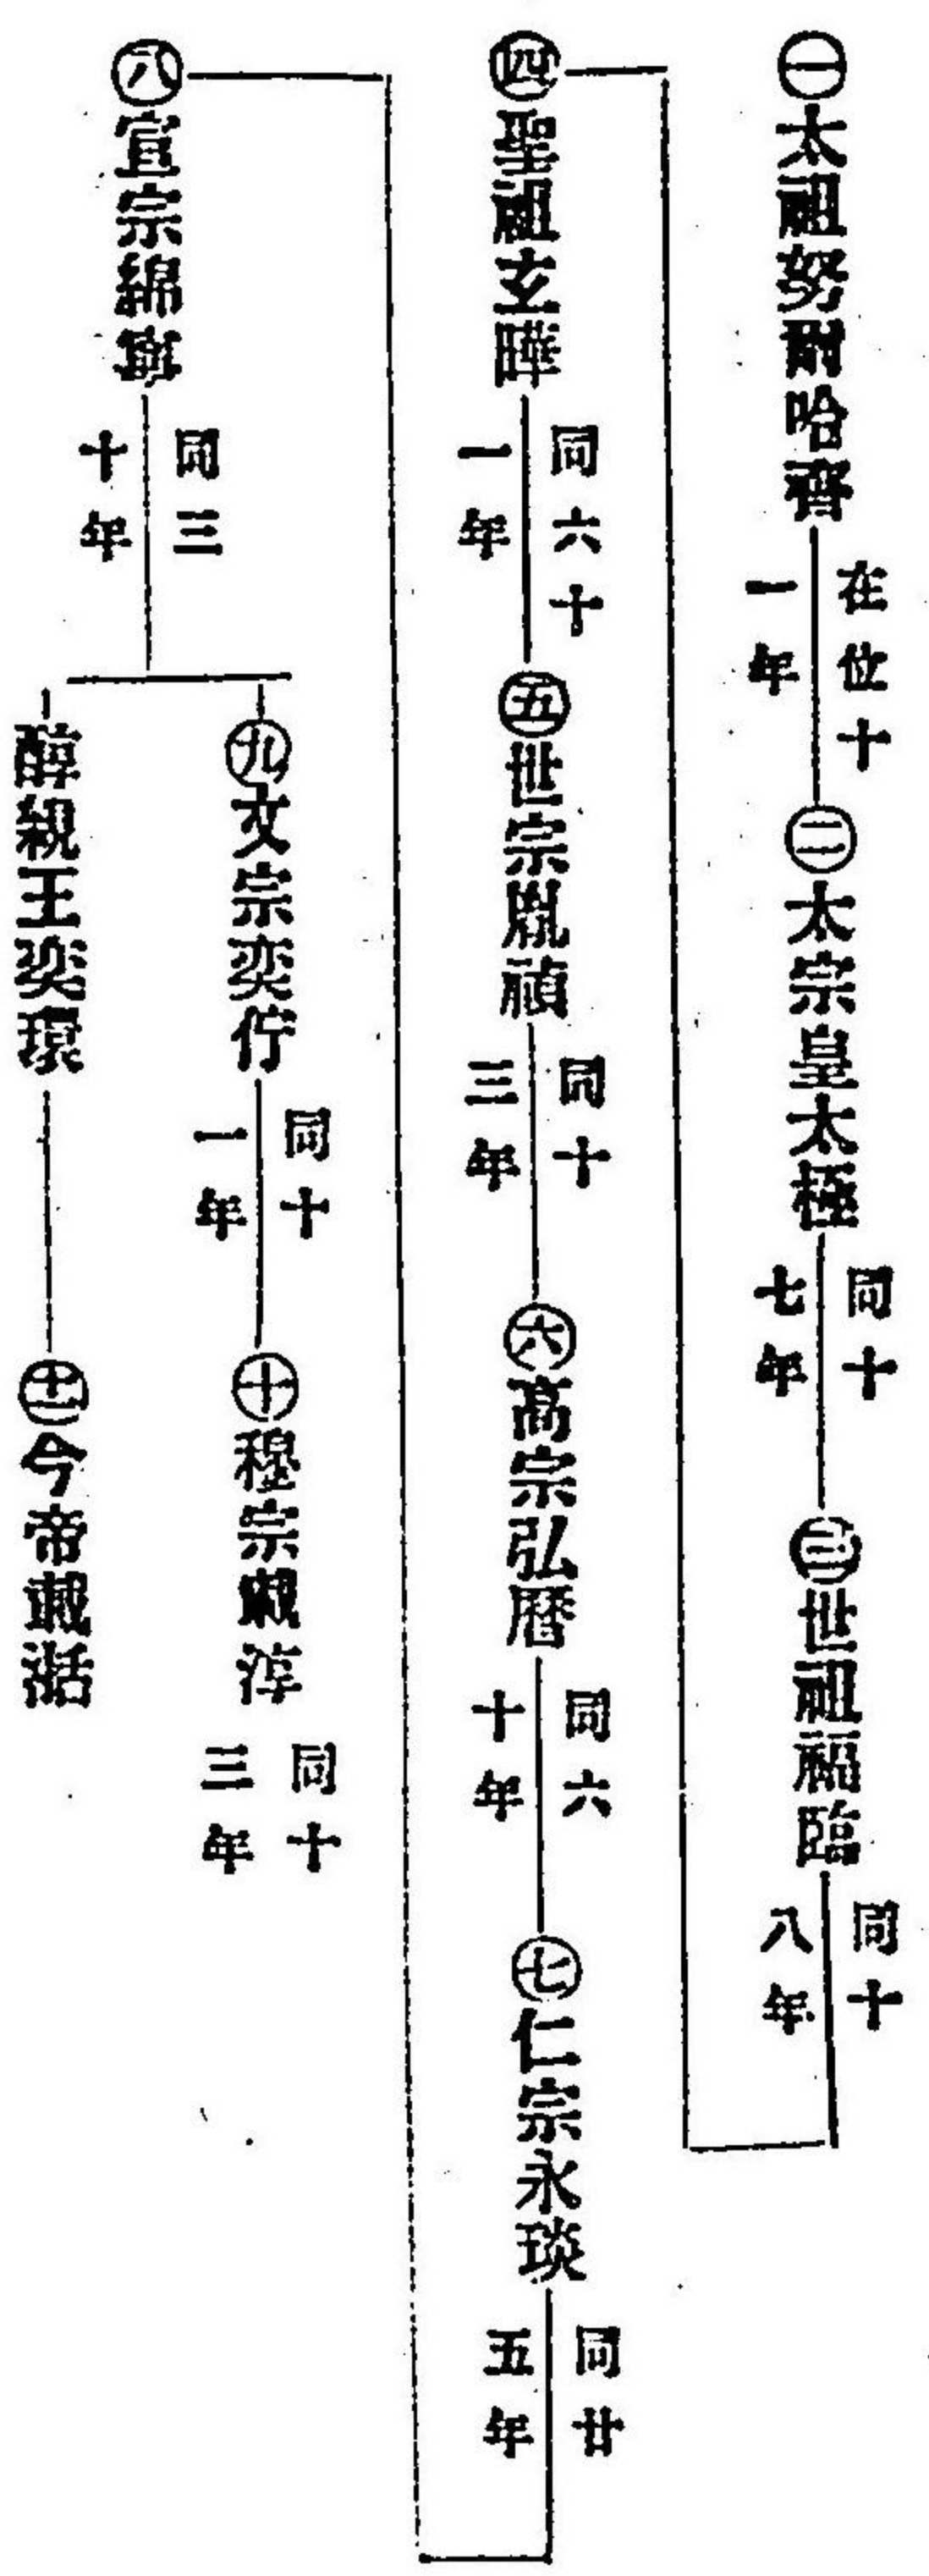 ㊀太祖努爾哈齊
在位十
一年
㊁太宗皇太極
同十
七年
㊂世祖福臨
同十
八年
㊃聖祖玄曄
同六十
一年
㊄世宗胤禎
同十
三年
㊅高宗弘曆
同六
十年
㊆仁宗永琰
同廿
五年
㊇宣宗綿寧
同三
十年
㊈文宗奕佇
同十
一年
㊉穆宗載淳
同十
三年
醇親王奕環
十一今帝載湉